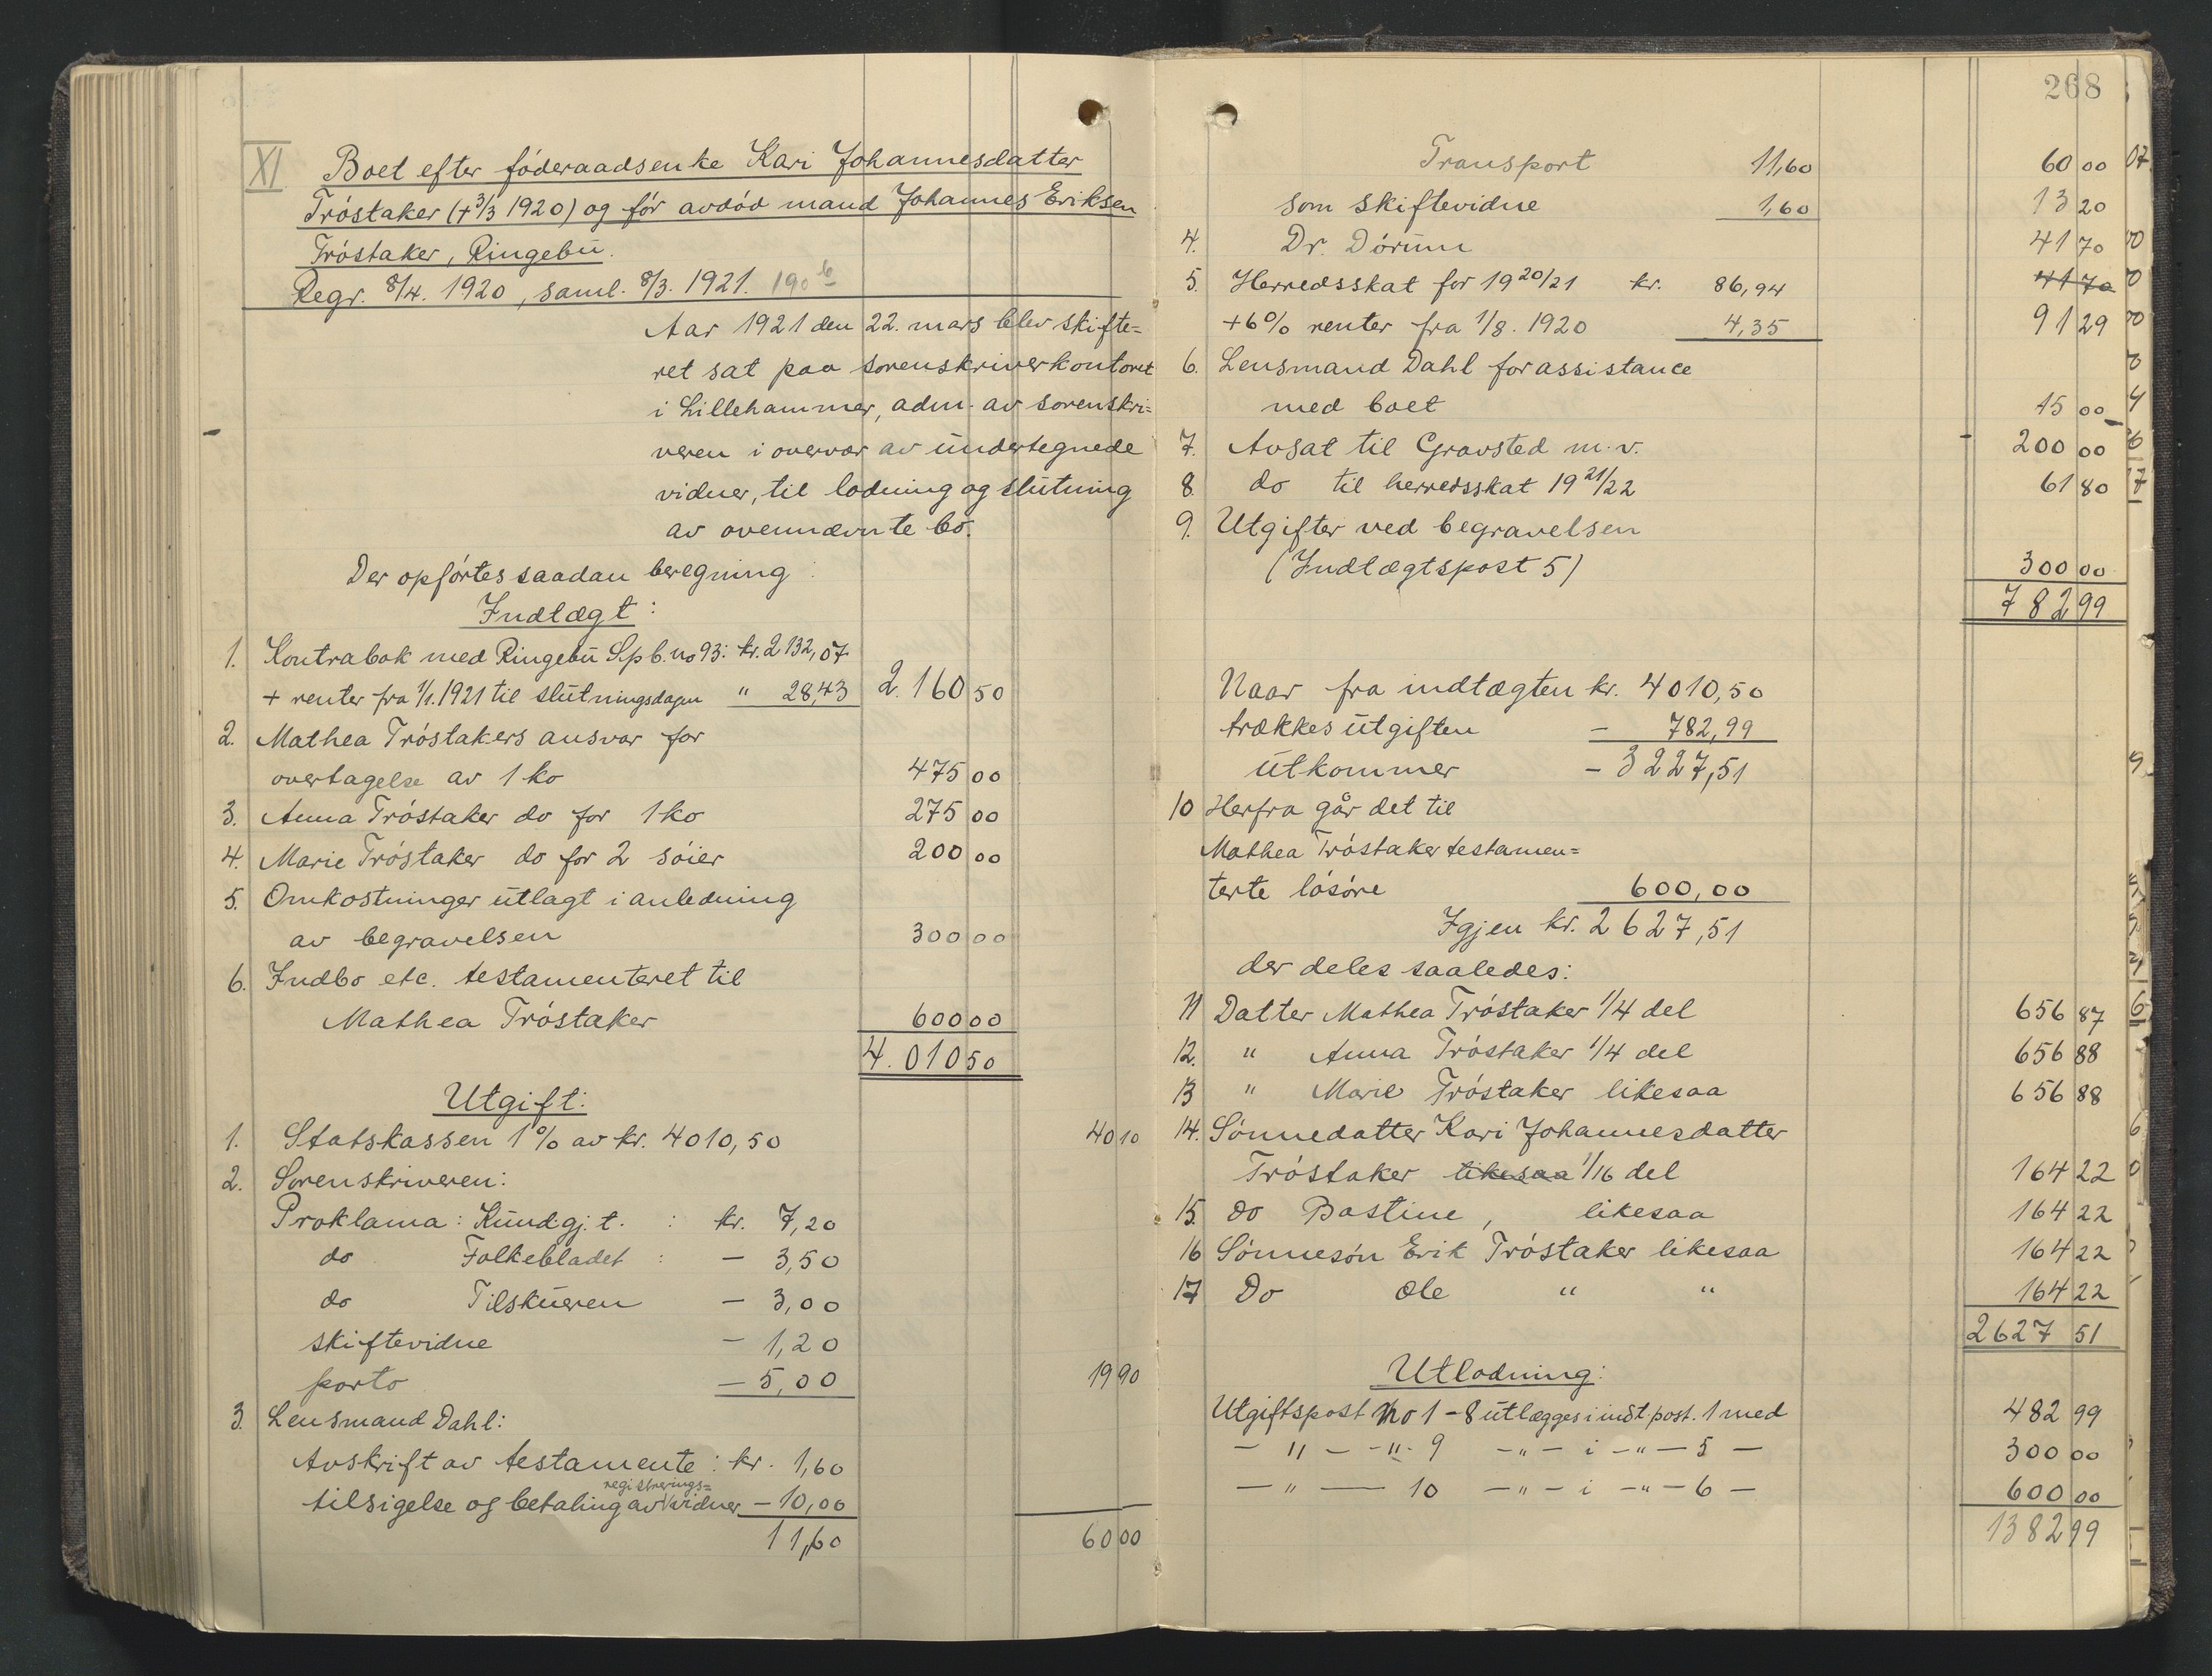 XI
Boet efter föderaadsenke Kari Johannesdatter
Tröstaker (+ 3/3 1920) og för avdöd mand Johannes Eriksen
Tröstaker, Ringebu.
Regr. 8/4. 1920, saml. 8/3. 1921. 190 b
Aar 1921 den 22. mars blev skifte=
ret sat paa sorenskriverkontoret
i Lillehammer, adm. av sorenskri=
veren i overvær av undertegnede
vidner, til lodning og slutning
av ovennævnte bo.
Der opförtes saadan beregning:
Indtægt:
1. Kontrabok med Ringebu Spb. no 93: kr. 2132,07
+ renter fra 1/1. 1921 til slutningsdagen " 28,43 2.160 50
2. Mathea Tröstakers ansvar for
overtagelse av 1 ko 475 00
3. Anna Tröstaker do for 1 ko 275 00
4. Marie Tröstaker do for 2 söier 200 00
5. Omkostninger utlagt i anledning
av begravelsen 300 00
6. Indbo etc. testamenteret til
Mathea Tröstaker 600 00
4.010 50
Utgift:
1. Statskassen 1% av kr. 4010,50 40 10
2. Sorenskriveren:
Proklama: Kundgj. t. : kr. 7,20
do Folkebladet : - 3,50
do Tilskueren - 3,00
skiftevidne - 1,20
porto - 5,00 19 90
3. Lensmand Dahl:
Avskrift av testamente: kr. 1,60
registrerings=
tilsigelse og betaling av vidner - 10,00
11,60 60 00
268
Transport 11,60 60 00
som skiftevidne 1,60 13 20
4. Dr. Dörum 41 70
5. Herredsskat for 19 20/21 kr. 86,94 41 70
+ 6% renter fra 1/8. 1920 4,35 91 29
6. Lensmand Dahl for assistance
med boet 15 00
7. Avsat til Gravsted m.v. 200 00
8. do til herredsskat 19 21/22 61 80
9. Utgifter ved begravelsen
(Indtægtspost 5) 300 00
782 99
Naar fra indtægten kr. 4010,50
trækkes utgiften - 782,99
utkommer - 3227,51
10 Herfra går det til
Mathea Tröstaker testamen=
terte lösöre 600,00
Igjen kr. 2627,51
der deles saaledes:
11 Datter Mathea Tröstaker 1/4 del 656 87
12. " Anna Tröstaker 1/4 del 656 88
13 " Marie Tröstaker likesaa 656 88
14. Sönnedatter Kari Johannesdatter
Tröstaker likesaa 1/16 del 164 22
15. do Bastine, likesaa 164 22
16 Sönnesön Erik Tröstaker likesaa 164 22
17 Do Ole " " 164 22
2627 51
Utlodning:
Utgiftspost no 1 - 8 utlægges i indt. post. 1 med 482 99
- " - - " - 9 - " - i - " - 5 - 300 00
- " - 10 - " - i - " - 6 - 600 00
1382 99